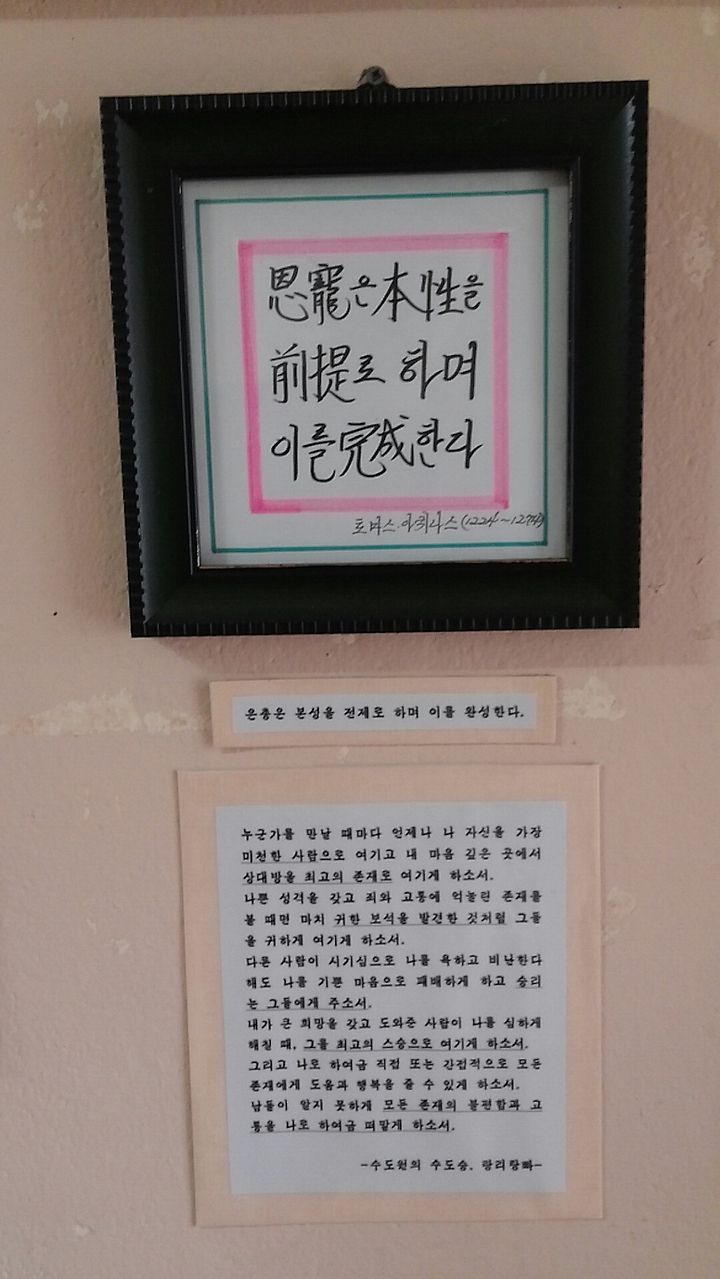 恩寵은 本性을
前提로 하며
이를 完成한다
토마스·아퀴나스(1224~1274)
은총은 본성을 전제로 하며 이를 완성한다.
누군가를 만날 때마다 언제나 나 자신을 가장
미천한 사람으로 여기고 내 마음 깊은 곳에서
상대방을 최고의 존재로 여기게 하소서.
나쁜 성격을 갖고 죄와 고통에 억눌린 존재를
볼 때면 마치 귀한 보석을 발견한 것처럼 그들
을 귀하게 여기게 하소서.
다른 사람이 시기심으로 나를 욕하고 비난한다
해도 나를 기쁜 마음으로 패배하게 하고 승리
는 그들에게 주소서.
내가 큰 희망을 갖고 도와준 사람이 나를 심하게
해칠 때, 그를 최고의 스승으로 여기게 하소서.
그리고 나로 하여금 직접 또는 간접적으로 모든
존재에게 도움과 행복을 줄 수 있게 하소서.
남들이 알지 못하게 모든 존재의 불편함과 고
통을 나로 하여금 떠맡게 하소서.
-수도원의 수도승, 랑리탕빠-